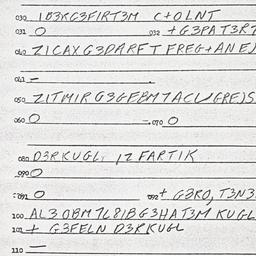 030 1D3KG3FIRT3M C+OLNT
031 O 032 +G3PAT3RT
040 71CAXG3DARFT FREG+ANE)
041 —
050 Z1TMIRG3GEBM7ACWGRE)S
060 O 070 O
080 D3RKUGL, 12 FARTIK
090 O
091 O 092 + G3RO, T3N3
100 AL3OBM7L81BG3HAT3M KUGL
101 + G3FELN D3RKUGL
110 —